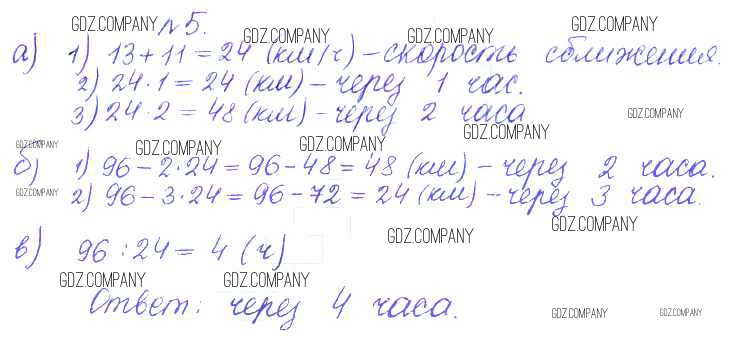 GDZ.COMPANY № 5. GDZ.COMPANY GDZ.COMPANY
а) 1) 13 + 11 = 24 (км/ч) – скорость сближения.
2) 24 · 1 = 24 (км) – через 1 час.
3) 24 · 2 = 48 (км) – через 2 часа GDZ.COMPANY
GDZ.COMPANY GDZ.COMPANY GDZ.COMPANY GDZ.COMPANY
б) 1) 96 – 2 · 24 = 96 – 48 = 48 (км) – через 2 часа.
GDZ.COMPANY 2) 96 – 3 · 24 = 96 – 72 = 24 (км) – через 3 часа.
GDZ.COMPANY GDZ.COMPANY
в) 96 : 24 = 4 (ч)
GDZ.COMPANY GDZ.COMPANY
Ответ: через 4 часа.
GDZ.COMPANY GDZ.COMPANY